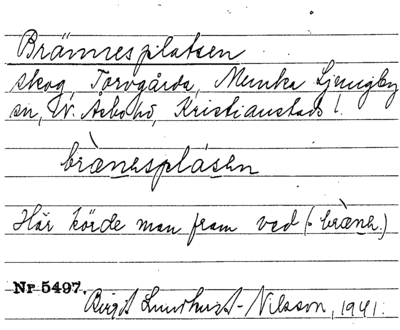 Brännesplatsen
skog, Torvgårda, Munka Ljungby
sn, N. Åsbo hd, Kristianstads l.
bræ̀nesplásen
Här körde man fram ved (: bræ̀ne.)
Nr 5497.
Birgit Lundkvist-Nilsson, 1941.